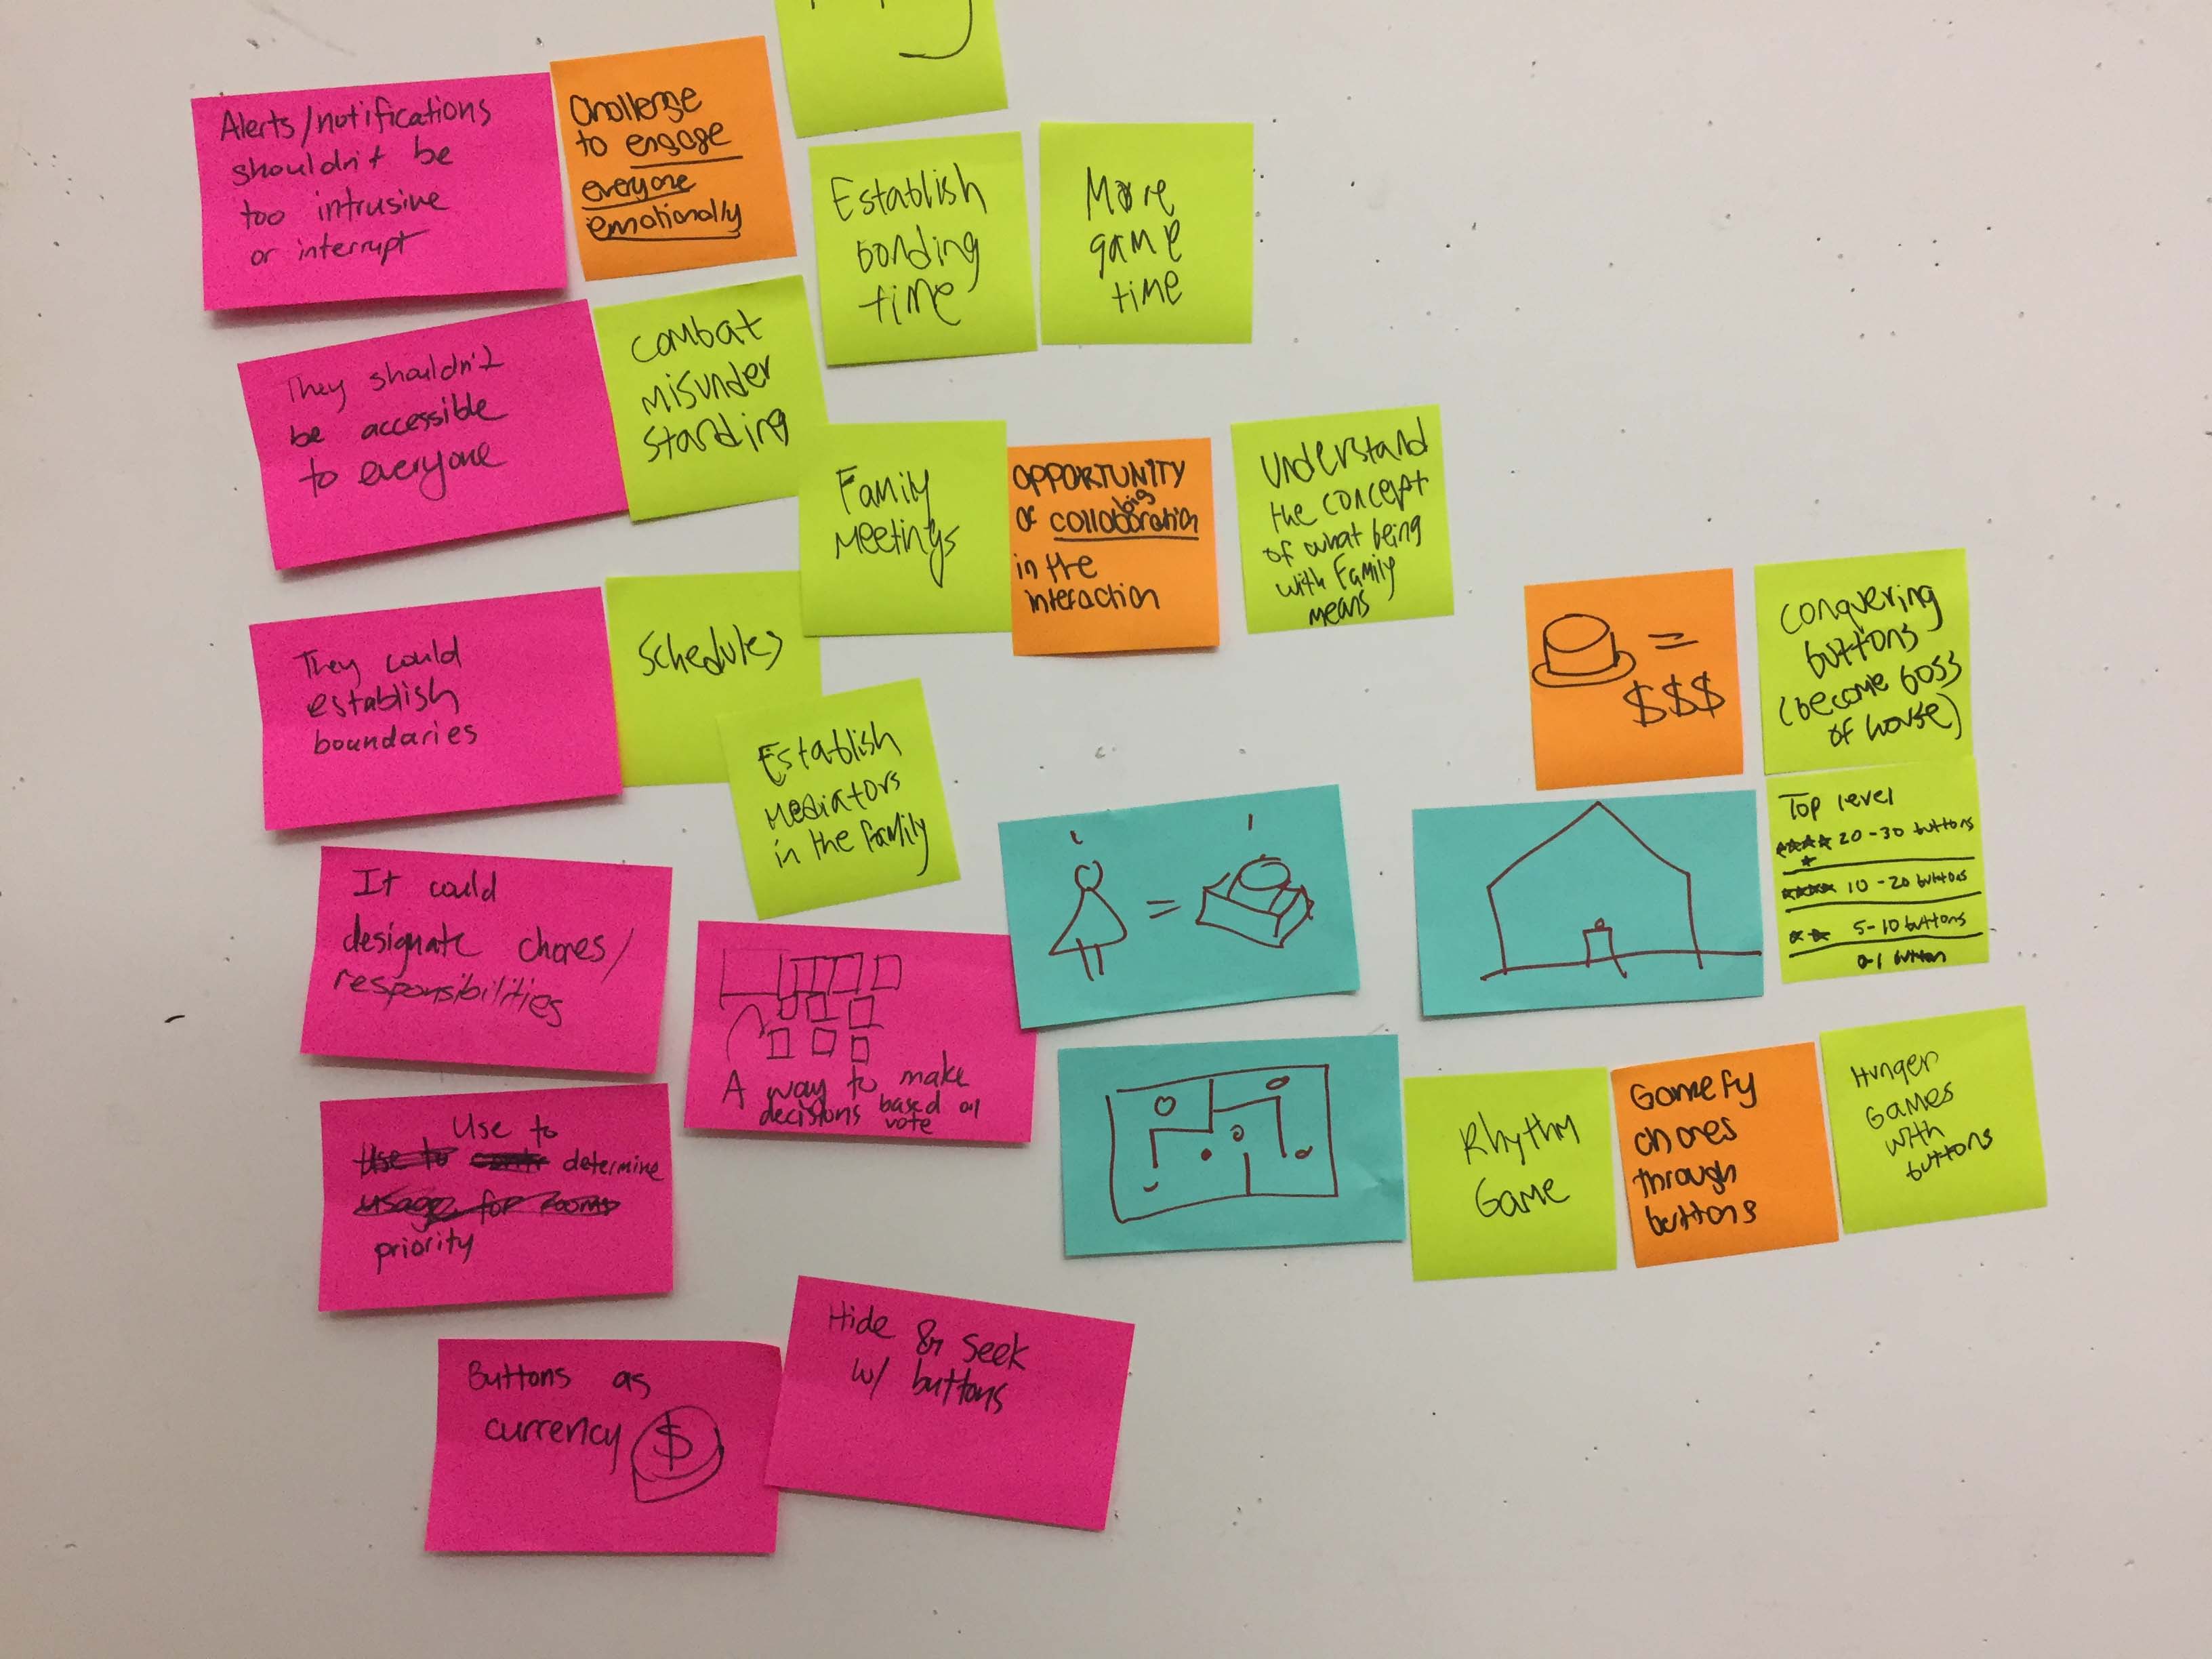 Alerts/notifications
shouldn't be
too intrusive
or interrupt
Challenge
to engage
everyone
emotionally
Establish
bonding
time
More
game
time
They shouldn't
be accessible
to everyone
combat
misunder
standing
Family
Meetings
OPPORTUNITY
of big collaboration
in the
interaction
Understand
the concept
of what being
with Family
means
They could
establish
boundaries
Schedules
Establish
mediators
in the family
=
$$$
Conquering
buttons
(become boss
of house)
Top level
20-30 buttons
10-20 buttons
5-10 buttons
0-1 button
It could
designate chores/
responsibilities
A way to make
decisions based on
vote
=
Use to
determine
priority
Rhythm
Game
Gamefy
chores
through
buttons
Hunger
Games
with
buttons
Buttons as
currency $
Hide & Seek
w/ buttons